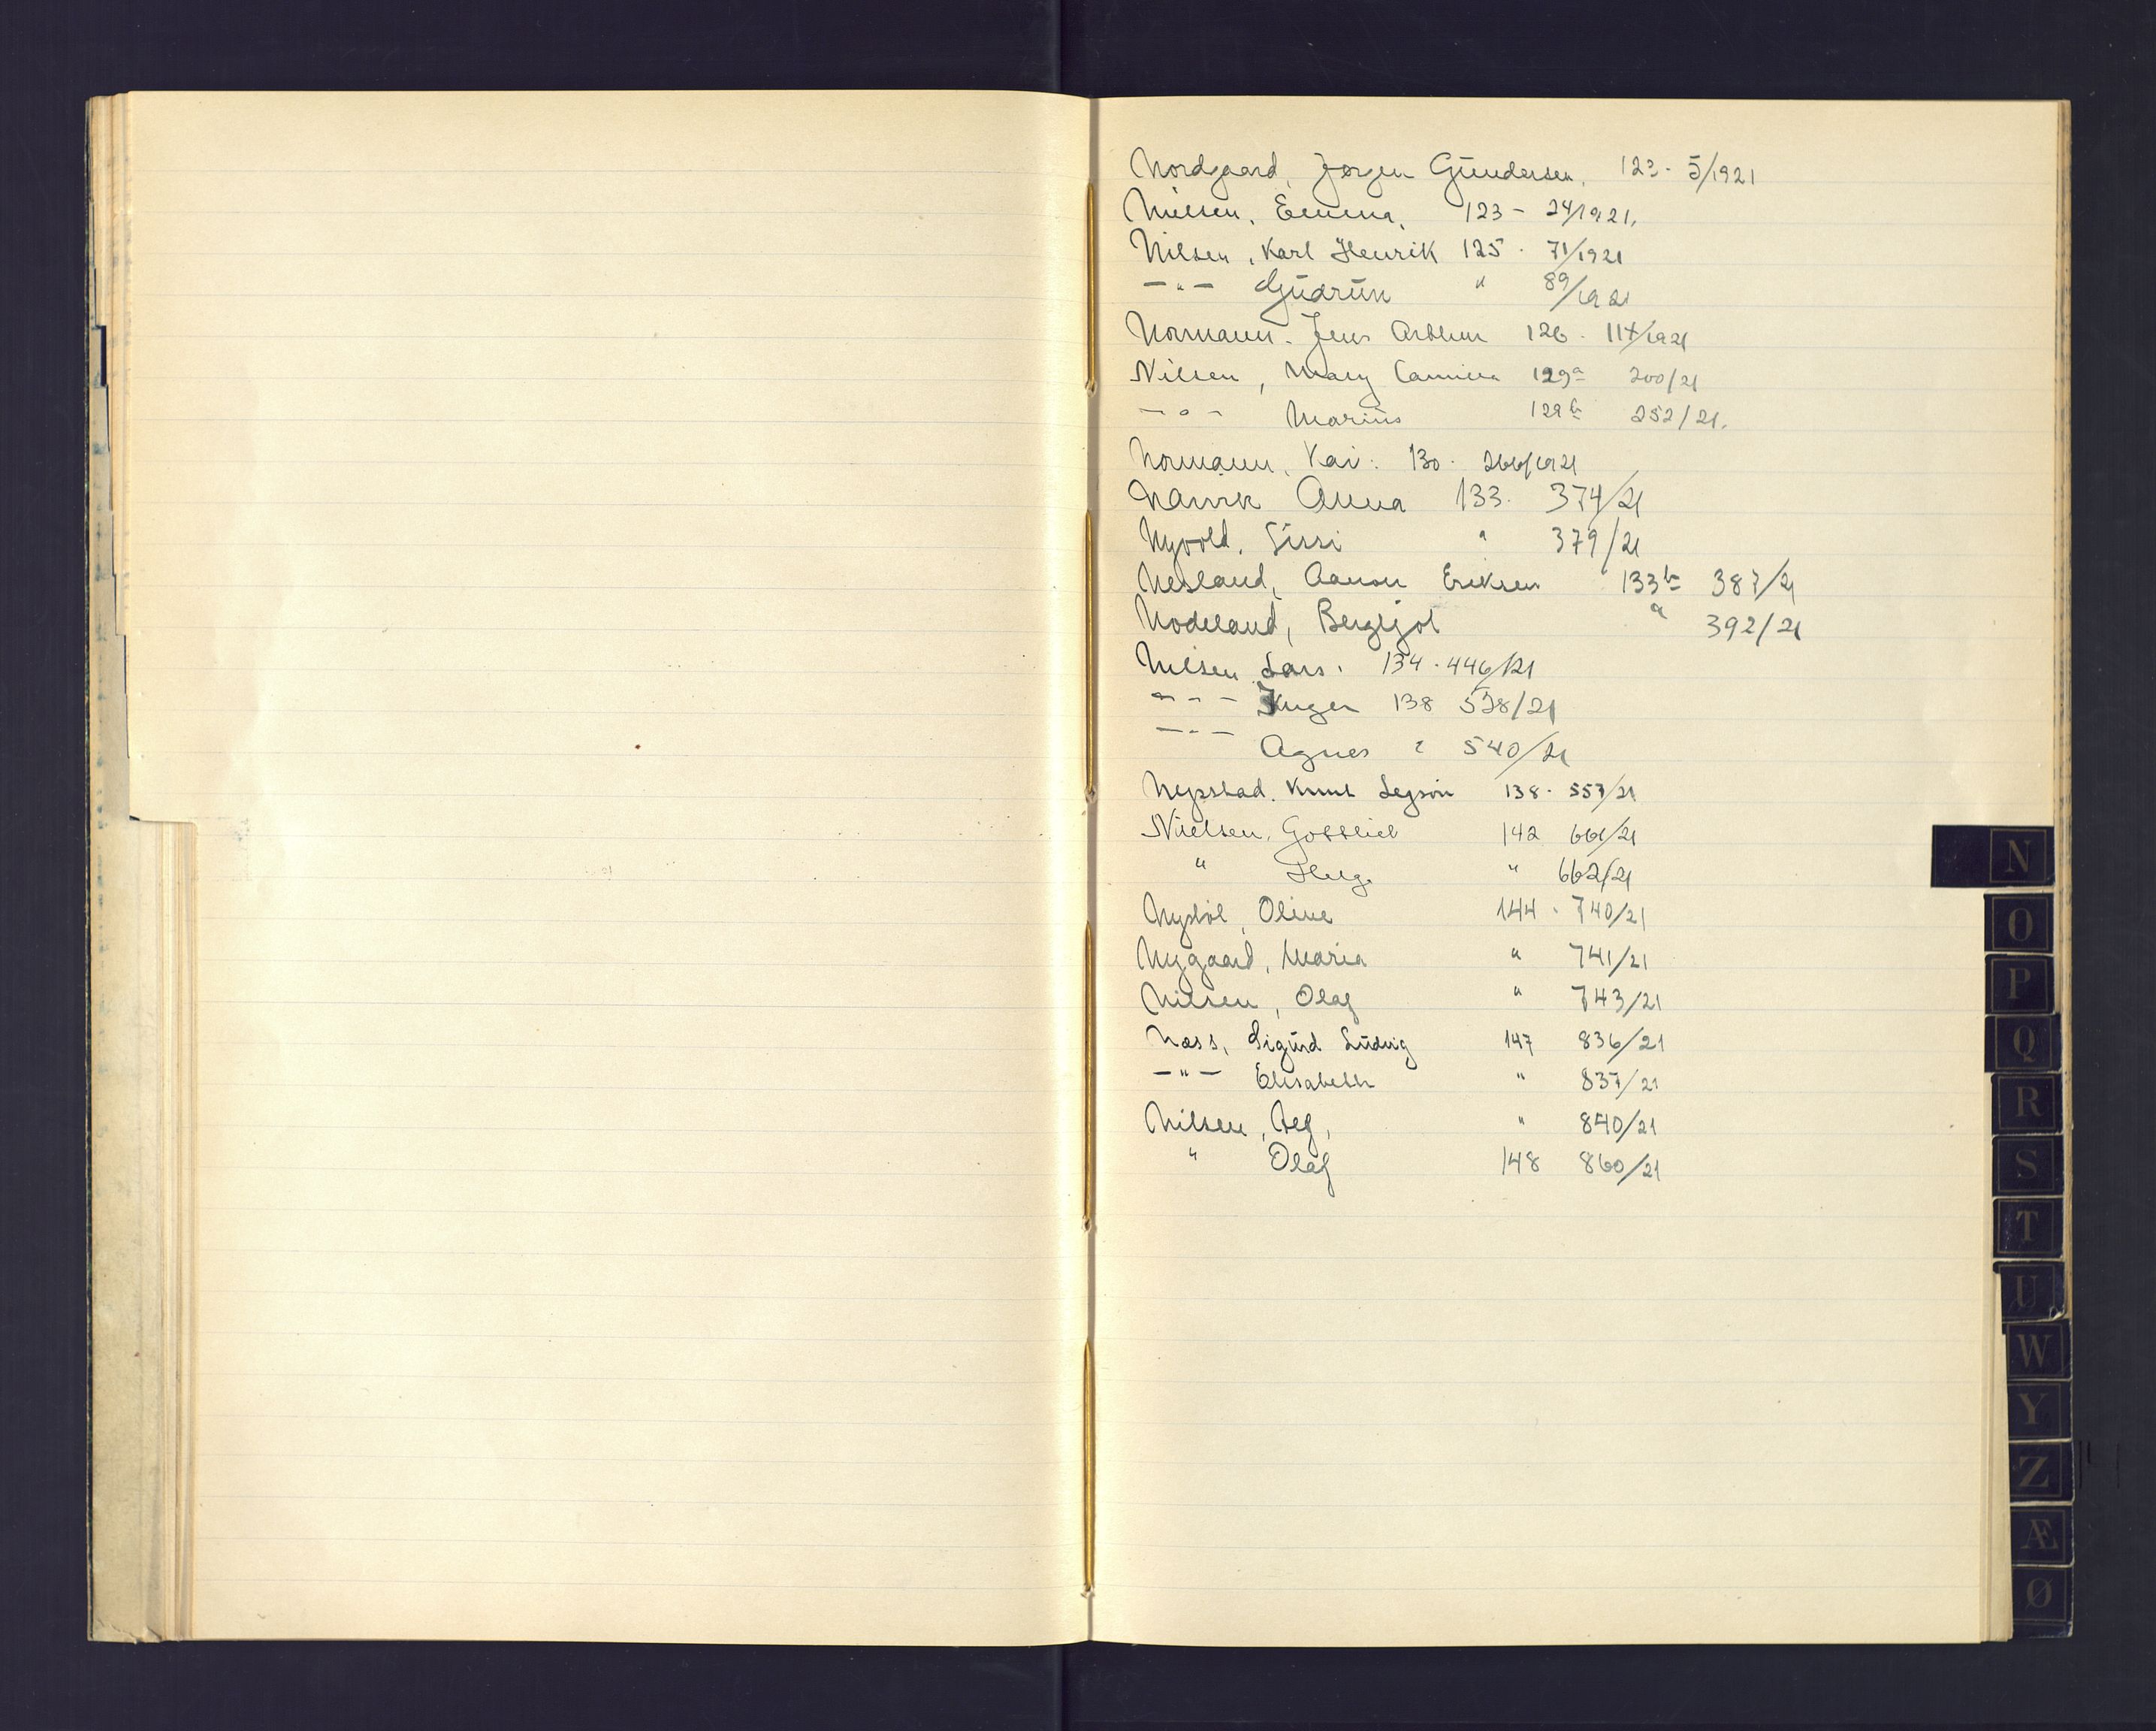 Nordgaard, Jørgen Gundersen, 123 - 5/1921
Nielsen, Emma, 123 - 24/1921.
Nilsen, Karl Henrik 125 - 71/1921
—"— Gudrun " 89/1921
Normann, Jens Arthur 126 - 114/1921
Nilsen, Mary Camilla 129a 200/21
—"— Marius 129b 252/21.
Normann, Kai: 130 - 266/1921
Anna 133 - 374/21
Nyvold, Sissi " 379/21
Nesland, Aanon Eriksen 133b 387/21
Nodeland, Bergljot " 392/21
Nilsen Lars. 134 - 446/21
—"— Inger 138 538/21
—"— Agnes " 540/21
Knut 138 - 557/21
Nielsen, Gottlieb 142 661/21
" Helge " 662/21
Nystøl, Oline 144 - 740/21
Nygaard, Maria " 741/21
Nilsen, Olaf " 743/21
Næss, Sigurd Ludvig 147 836/21
—"— Elisabeth " 837/21
Nilsen, Alf, " 840/21
" Olaf 148 860/21
N
O
P
Q
R
S
T
U
W
Y
Z
Æ
Ø